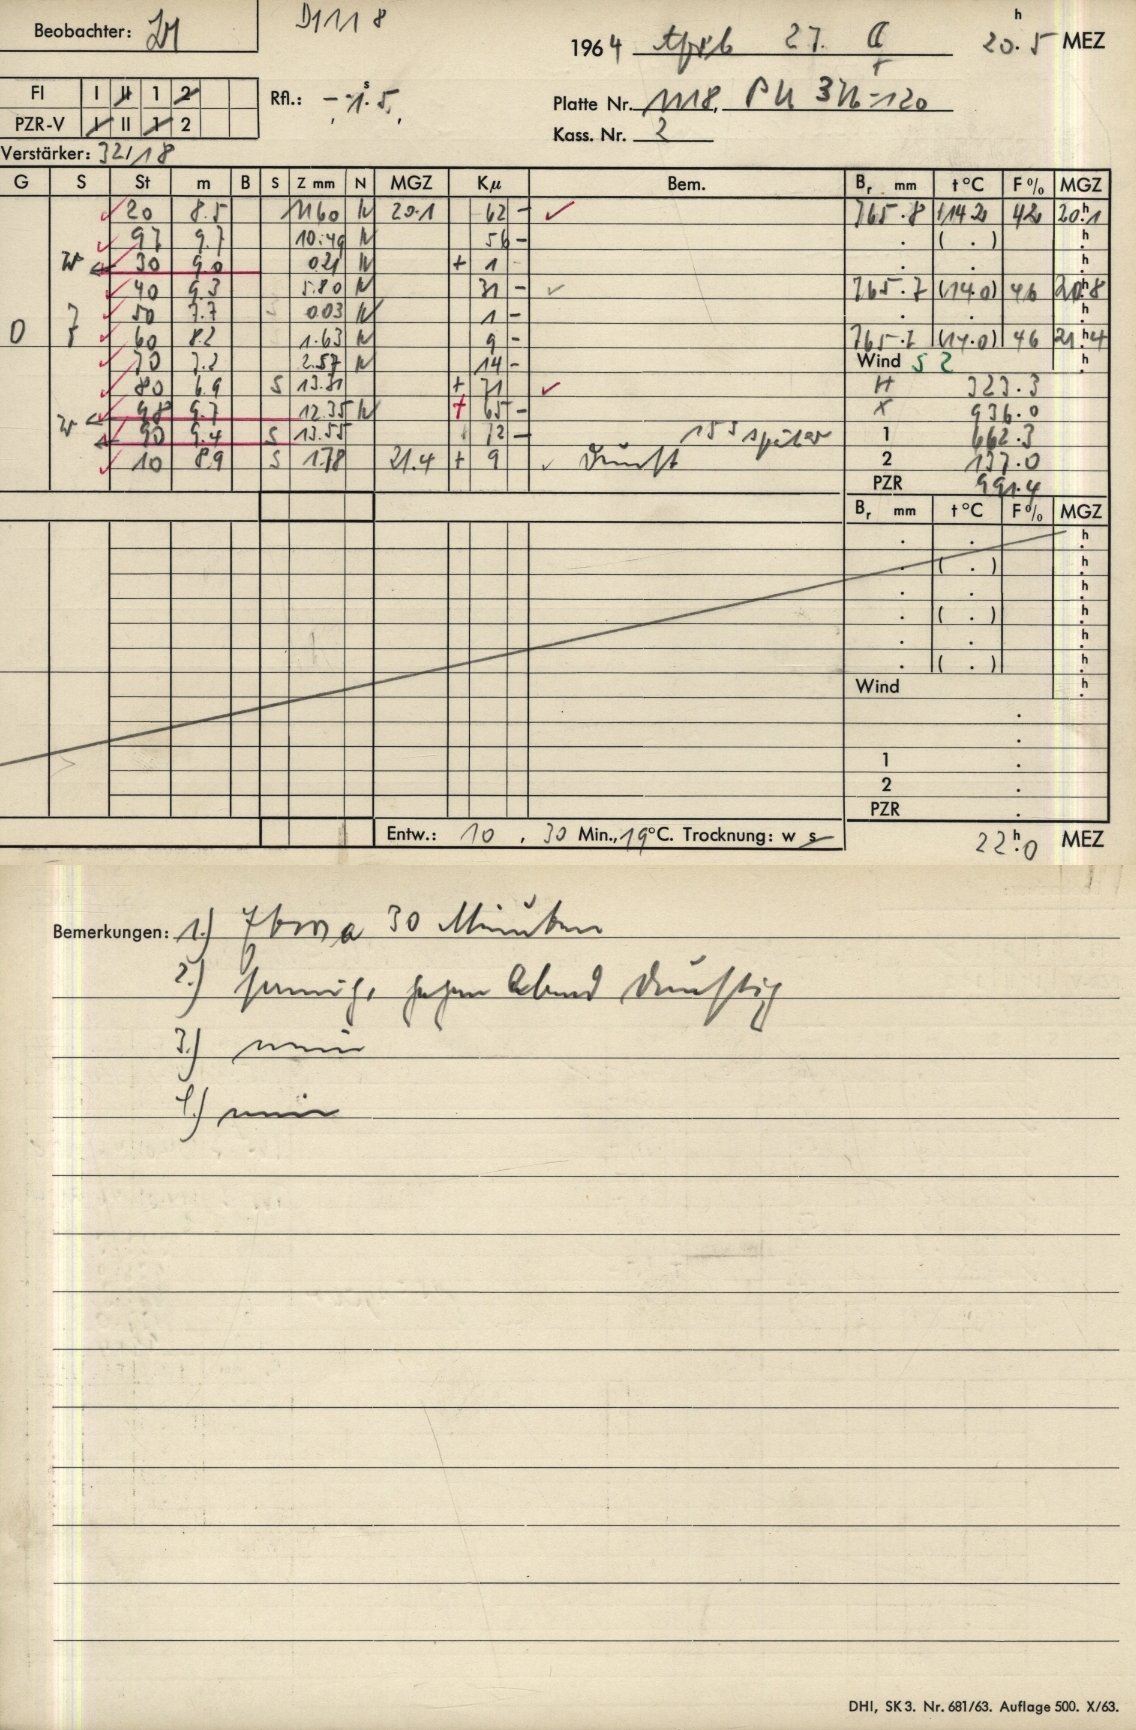 Beobachter:
D1118
1964 April 27. 20h.5 MEZ
FI I II 1 2
PZR-V I II 1 2
Rfl.: - -1s.5
Platte Nr. 1118,
Kass. Nr. 2
Verstärker: 32/18
G S St m B S Z mm N MGZ Kμ Bem. Br mm t °C F % MGZ
20 8.5 1160 N 20.1 62 - 765.8 (14.2) 42 20h.1
97 9.7 10.49 N 56 - . ( . ) h
W 30 9.0 021 N + 1 - . . h
40 9.3 5.80 N 31 - 765.7 (14.0) 46 20h.8
50 7.7 S 003 N 1 - . . h
0 60 8.2 1.63 N 9 - 765.7 (14.0) 46 21h.4
70 7.2 2.57 N 14 - Wind S 2 h
80 6.9 S 13.31 + 71 H 323.3
98 9.7 12.35 N + 65 - X 936.0
W 90 9.4 S 13.55 72 - 15s später 1 662.3
10 8.9 S 1.78 21.4 + 9 Dunst 2 137.0
PZR 991.4
Br mm t °C F % MGZ
. . h
. ( . ) h
. . h
. ( . ) h
. . h
. ( . ) h
Wind h
.
.
1 .
2 .
PZR .
Entw.: 10, 30 Min., 19°C. Trocknung: w s
22h.0 MEZ
Bemerkungen: 1.) etwa 30 Minuten
2.) sonnig, gegen Abend dunstig
3.) nein
4.) nein
DHI, SK 3. Nr. 681/63. Auflage 500. X/63.